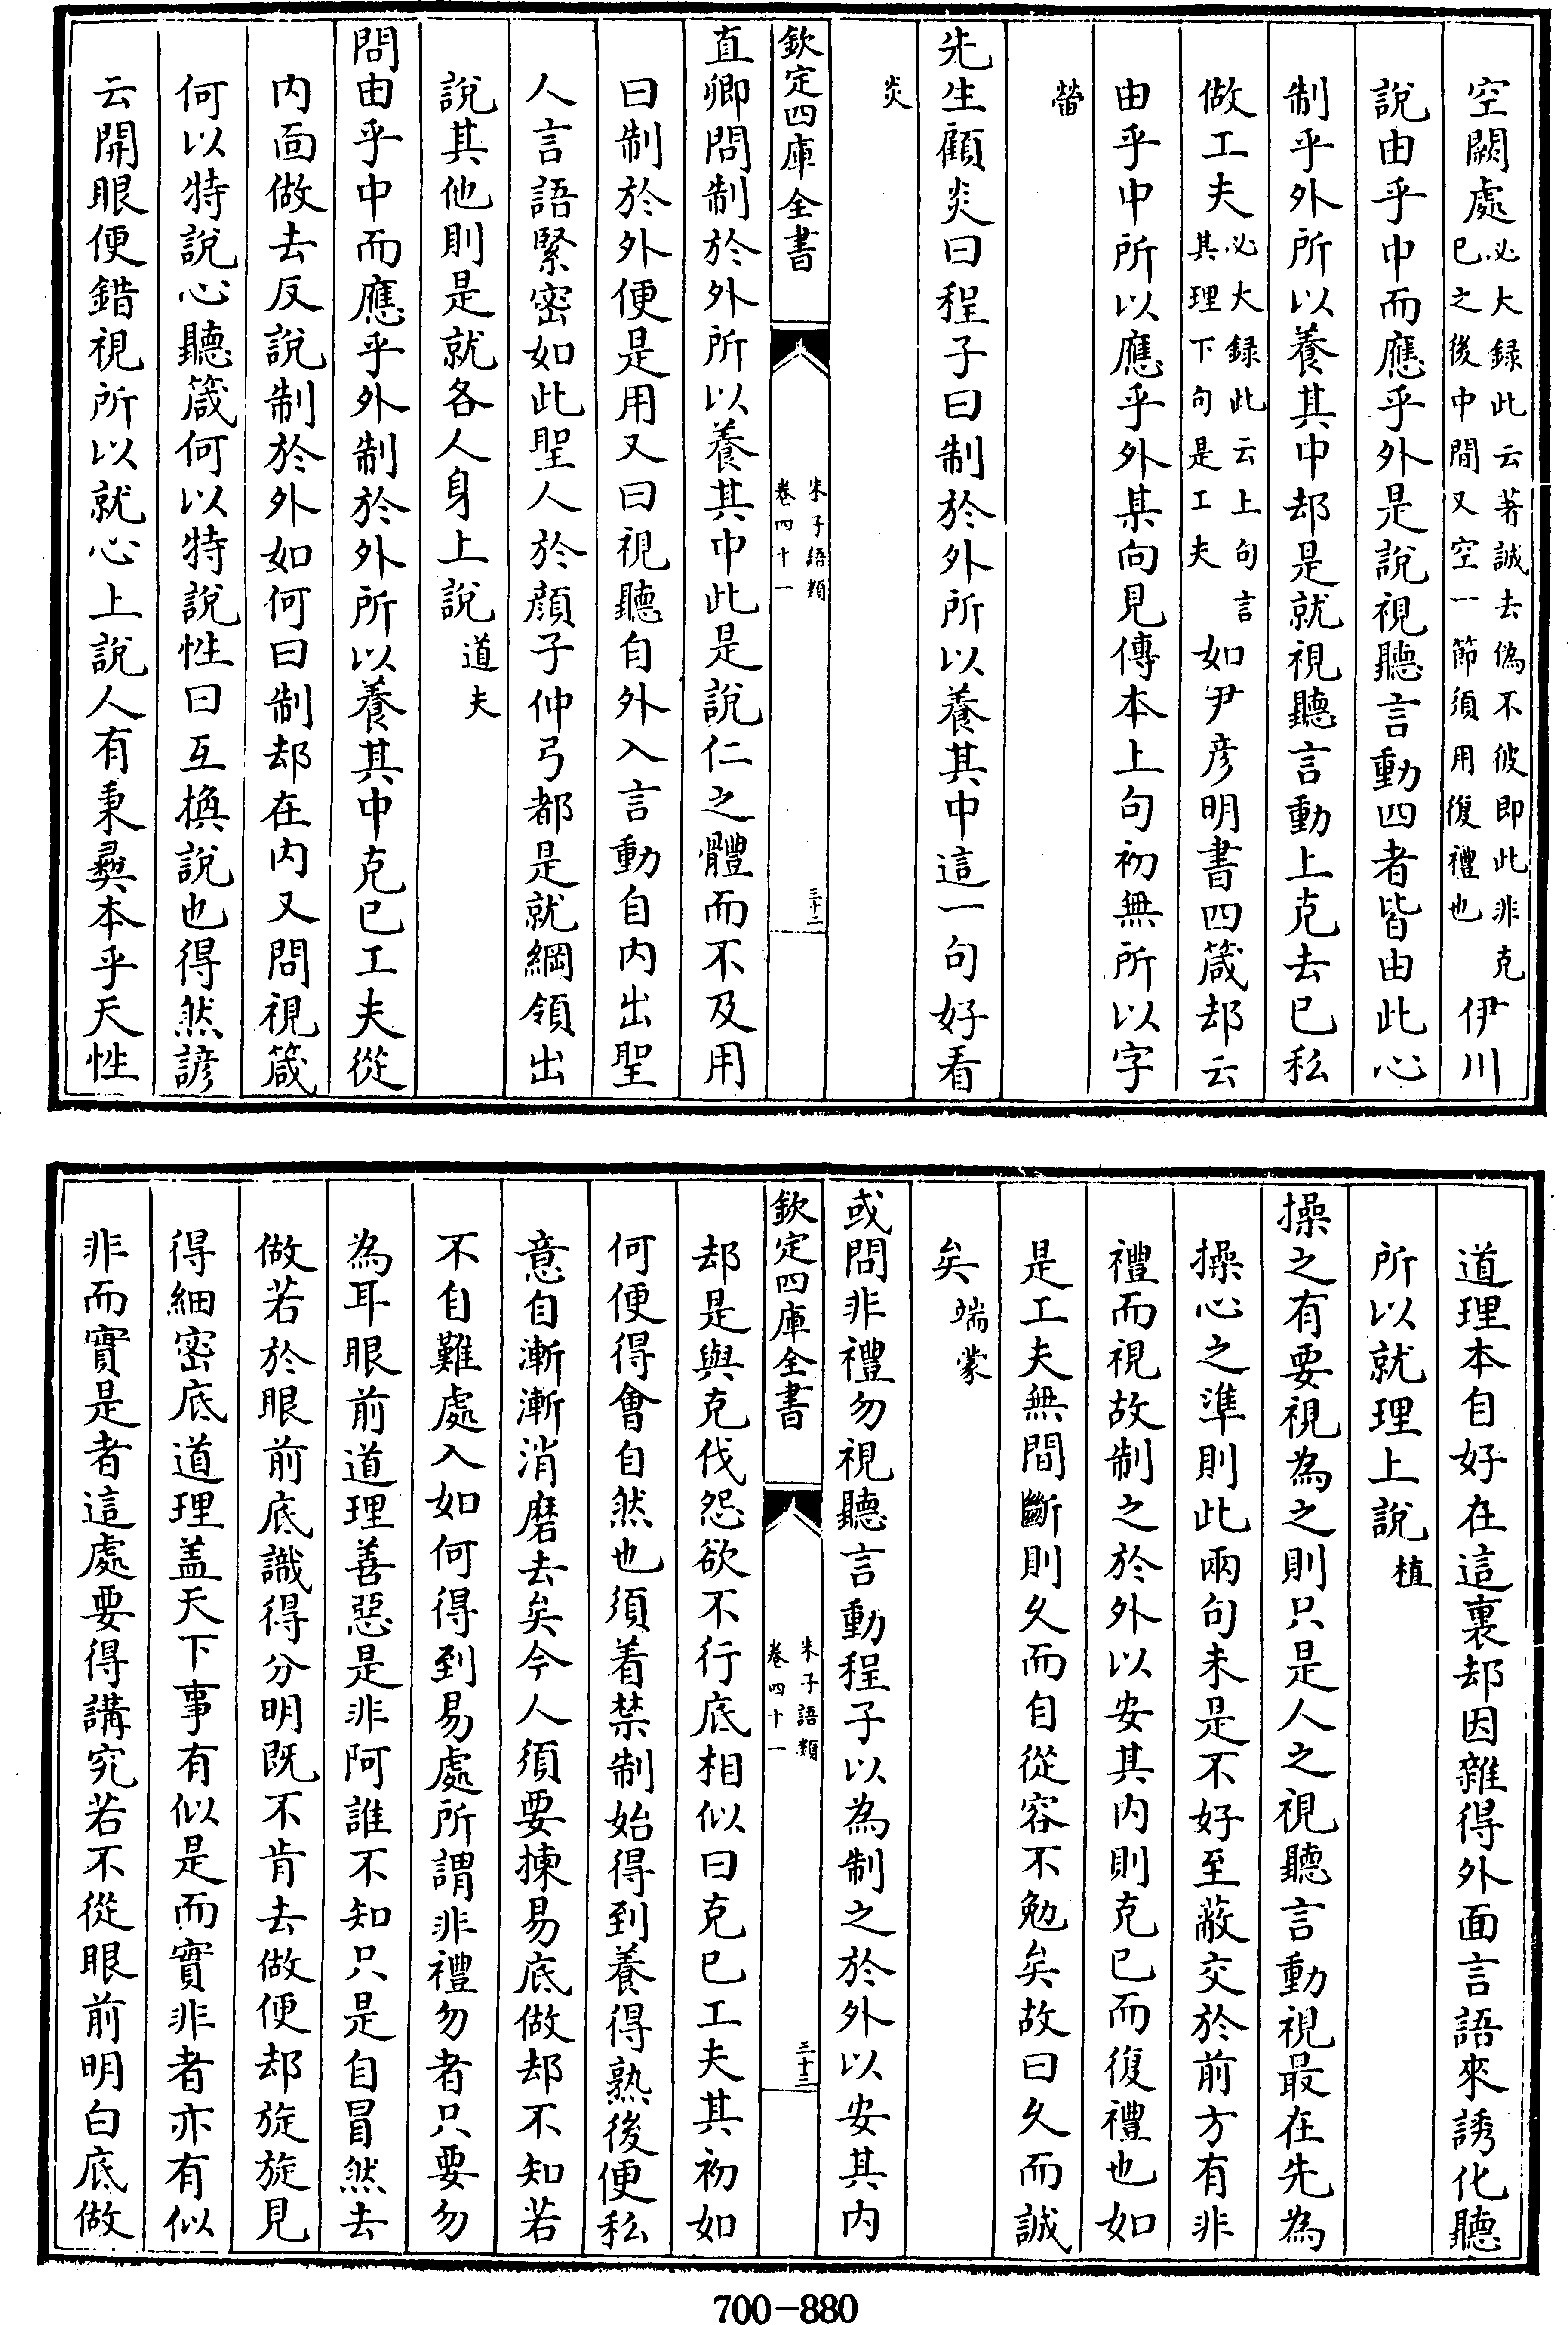 空闕處必大録此云著誠去偽不彼即此非克
已之後中間又空一節須用復禮也伊川
說由乎中而應乎外是說視聽言動四者皆由此心
制乎外所以養其中却是就視聽言動上克去已私
做工夫必大録此云上句言
其理下句是工夫如尹彦明書四箴却云
由乎中所以應乎外某向見傳本上句初無所以字
㽦
先生顧炎曰程子曰制於外所以養其中這一句好看
炎
欽定四庫全書
朱子語類
卷四十一
三十二
直卿問制於外所以養其中此是說仁之體而不及用
曰制於外便是用又曰視聽自外入言動自内出聖
人言語緊密如此聖人於顔子仲弓都是就綱領出
說其他則是就各人身上說道夫
問由乎中而應乎外制於外所以養其中克已工夫從
内面做去反說制於外如何曰制却在内又問視箴
何以特說心聽箴何以特說性曰互換說也得然諺
云開眼便錯視所以就心上說人有秉彛本乎天性
道理本自好在這裏却因雜得外面言語來誘化聽
所以就理上說植
操之有要視為之則只是人之視聽言動視最在先為
操心之準則此兩句未是不好至蔽交於前方有非
禮而視故制之於外以安其内則克已而復禮也如
是工夫無間斷則久而自從容不勉矣故曰久而誠
矣端蒙
或問非禮勿視聽言動程子以為制之於外以安其内
欽定四庫全書
朱子語類
卷四十一
三十三
却是與克伐怨欲不行底相似曰克已工夫其初如
何便得會自然也須着禁制始得到養得熟後便私
意自漸漸消磨去矣今人須要揀易底做却不知若
不自難處入如何得到易處所謂非禮勿者只要勿
為耳眼前道理善惡是非阿誰不知只是自冒然去
做若於眼前底識得分明既不肯去做便却旋旋見
得細密底道理盖天下事有似是而實非者亦有似
非而實是者這處要得講究若不從眼前明白底做
700-880